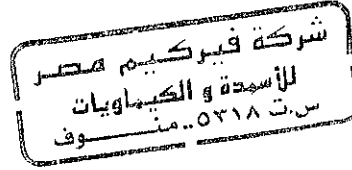 شركة فيركيم مصر
للأسمدة و الكيماويات
س.ت ٥٣١٨.. منوف